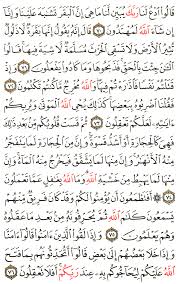 قَالُوا۟ ٱدْعُ لَنَا رَبَّكَ يُبَيِّن لَّنَا مَا هِىَ إِنَّ ٱلْبَقَرَ تَشَٰبَهَ عَلَيْنَا وَإِنَّآ
إِن شَآءَ ٱللَّهُ لَمُهْتَدُونَ ٧٠ قَالَ إِنَّهُۥ يَقُولُ إِنَّهَا بَقَرَةٌ لَّا ذَلُولٌ
تُثِيرُ ٱلْأَرْضَ وَلَا تَسْقِى ٱلْحَرْثَ مُسَلَّمَةٌ لَّا شِيَةَ فِيهَا قَالُوا۟
ٱلْـَٰٔنَ جِئْتَ بِٱلْحَقِّ فَذَبَحُوهَا وَمَا كَادُوا۟ يَفْعَلُونَ ٧١
وَإِذْ قَتَلْتُمْ نَفْسًا فَٱدَّٰرَْٰٔتُمْ فِيهَا وَٱللَّهُ مُخْرِجٌ مَّا كُنتُمْ تَكْتُمُونَ ٧٢
فَقُلْنَا ٱضْرِبُوهُ بِبَعْضِهَا كَذَٰلِكَ يُحْىِ ٱللَّهُ ٱلْمَوْتَىٰ وَيُرِيكُمْ
ءَايَٰتِهِۦ لَعَلَّكُمْ تَعْقِلُونَ ٧٣ ثُمَّ قَسَتْ قُلُوبُكُم مِّنۢ بَعْدِ ذَٰلِكَ
فَهِىَ كَٱلْحِجَارَةِ أَوْ أَشَدُّ قَسْوَةً وَإِنَّ مِنَ ٱلْحِجَارَةِ لَمَا يَتَفَجَّرُ
مِنْهُ ٱلْأَنْهَٰرُ وَإِنَّ مِنْهَا لَمَا يَشَّقَّقُ فَيَخْرُجُ مِنْهُ ٱلْمَآءُ وَإِنَّ
مِنْهَا لَمَا يَهْبِطُ مِنْ خَشْيَةِ ٱللَّهِ وَمَا ٱللَّهُ بِغَٰفِلٍ عَمَّا تَعْمَلُونَ ٧٤
أَفَتَطْمَعُونَ أَن يُؤْمِنُوا۟ لَكُمْ وَقَدْ كَانَ فَرِيقٌ مِّنْهُمْ
يَسْمَعُونَ كَلَٰمَ ٱللَّهِ ثُمَّ يُحَرِّفُونَهُۥ مِنۢ بَعْدِ مَا عَقَلُوهُ
وَهُمْ يَعْلَمُونَ ٧٥ وَإِذَا لَقُوا۟ ٱلَّذِينَ ءَامَنُوا۟ قَالُوٓا۟ ءَامَنَّا
وَإِذَا خَلَا بَعْضُهُمْ إِلَىٰ بَعْضٍ قَالُوٓا۟ أَتُحَدِّثُونَهُم بِمَا فَتَحَ
ٱللَّهُ عَلَيْكُمْ لِيُحَآجُّوكُم بِهِۦ عِندَ رَبِّكُمْ أَفَلَا تَعْقِلُونَ ٧٦